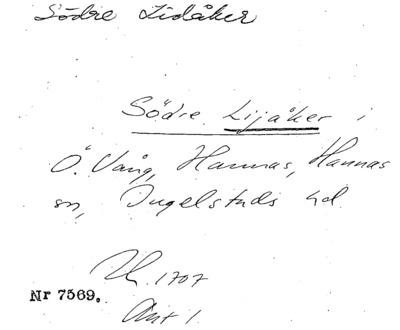 Södre Lidåker
Södre Lijåker i
Ö. Vång, Hannas, Hannas
sn, Ingelstads hd.
1707
Nr 7569.
Akt 1.